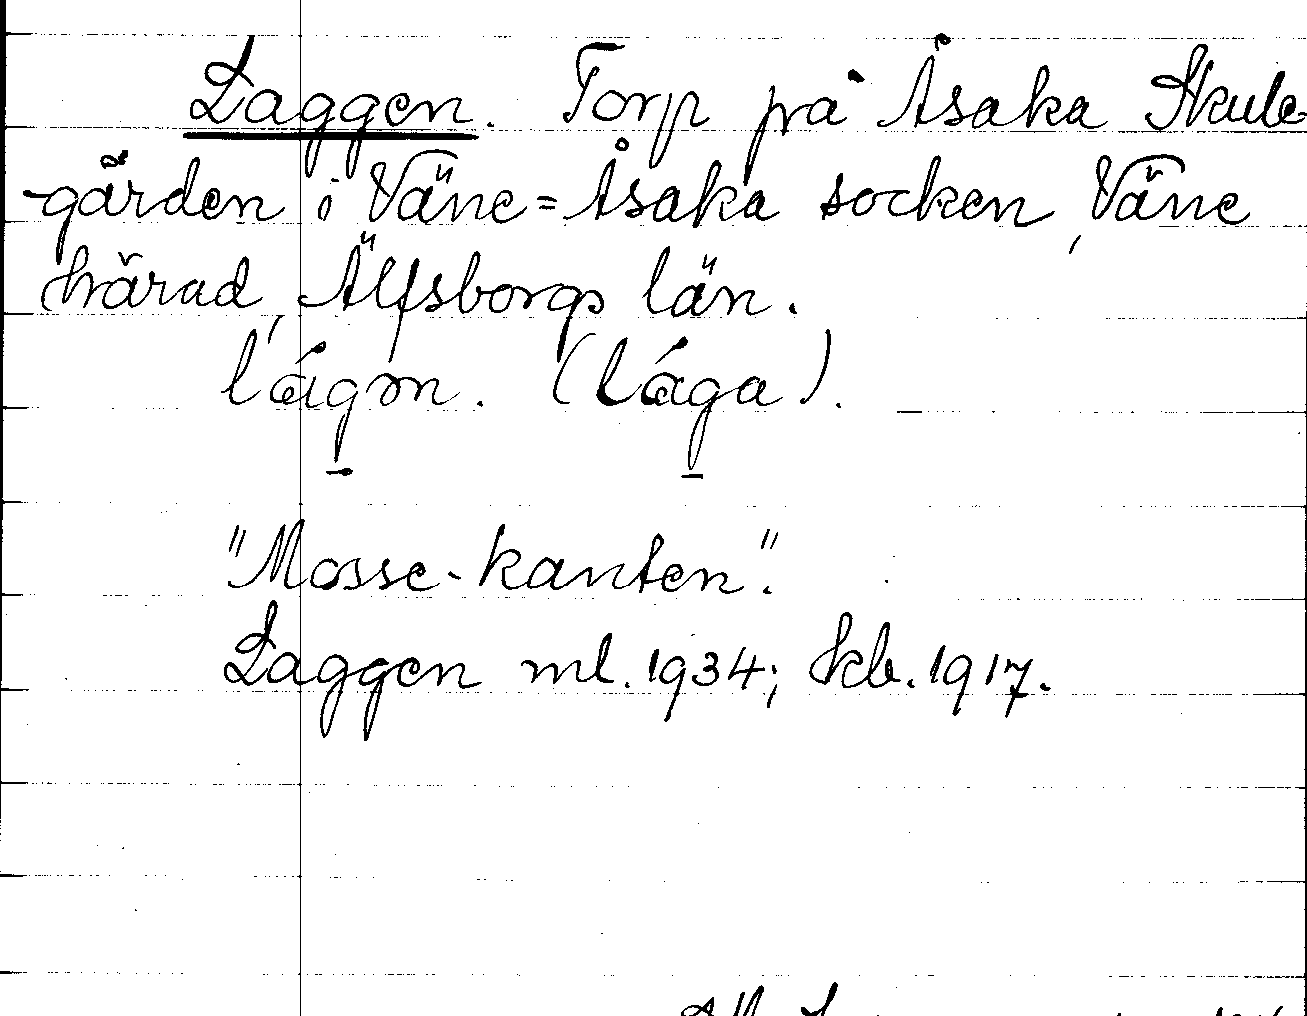 Laggen. Torp på Åsaka Skule
gården i Väne=Åsaka socken, Väne
härad, Älfsborgs län.
lágm. (lága).
"Mosse-kanten".
Laggen ml. 1934; kb. 1917.